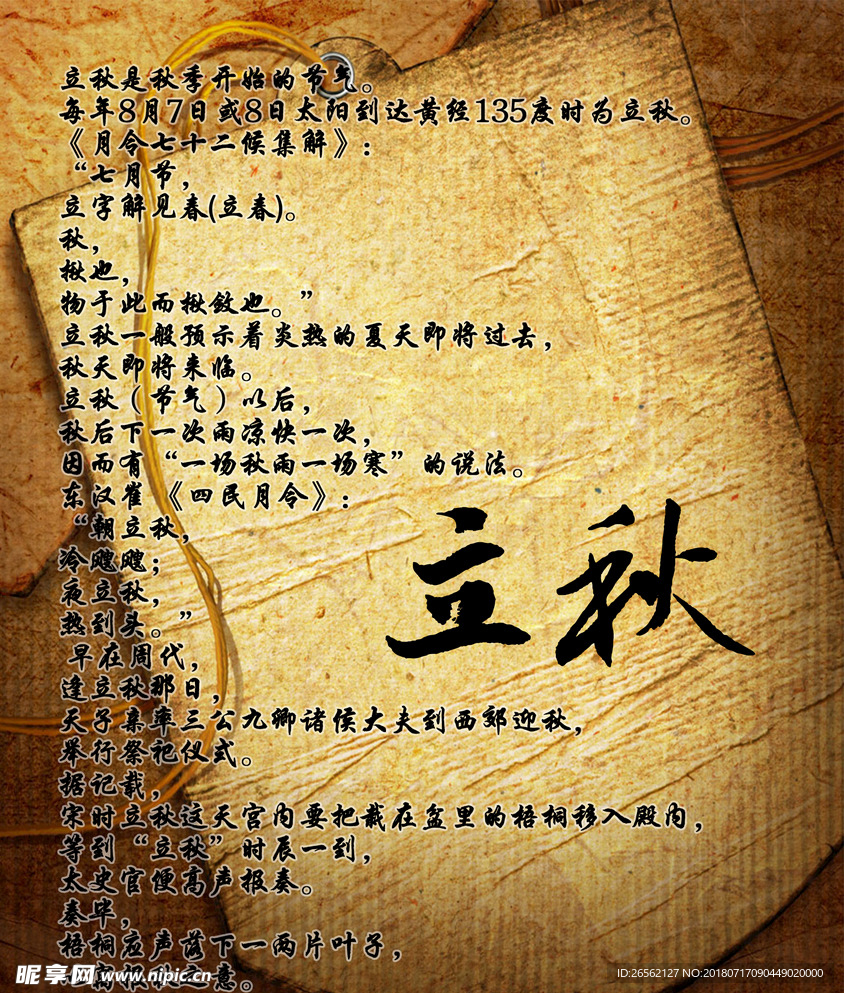 立秋是秋季开始的节气。
每年8月7日或8日太阳到达黄经135度时为立秋。
《月令七十二候集解》：
“七月节，
立字解见春(立春)。
秋，
揪也，
物于此而揪敛也。”
立秋一般预示着炎热的夏天即将过去，
秋天即将来临。
立秋（节气）以后，
秋后下一次雨凉快一次，
因而有“一场秋雨一场寒”的说法。
东汉崔《四民月令》：
“朝立秋，
冷飕飕；
夜立秋，
热到头。”
立秋
早在周代，
逢立秋那日，
天子亲率三公九卿诸侯大夫到西郊迎秋，
举行祭祀仪式。
据记载，
宋时立秋这天宫内要把栽在盆里的梧桐移入殿内，
等到“立秋”时辰一到，
太史官便高声报奏。
奏毕，
梧桐应声落下一两片叶子，
之意。
昵享网 www.nipic.cn
ID:26562127 NO:20180717090449020000